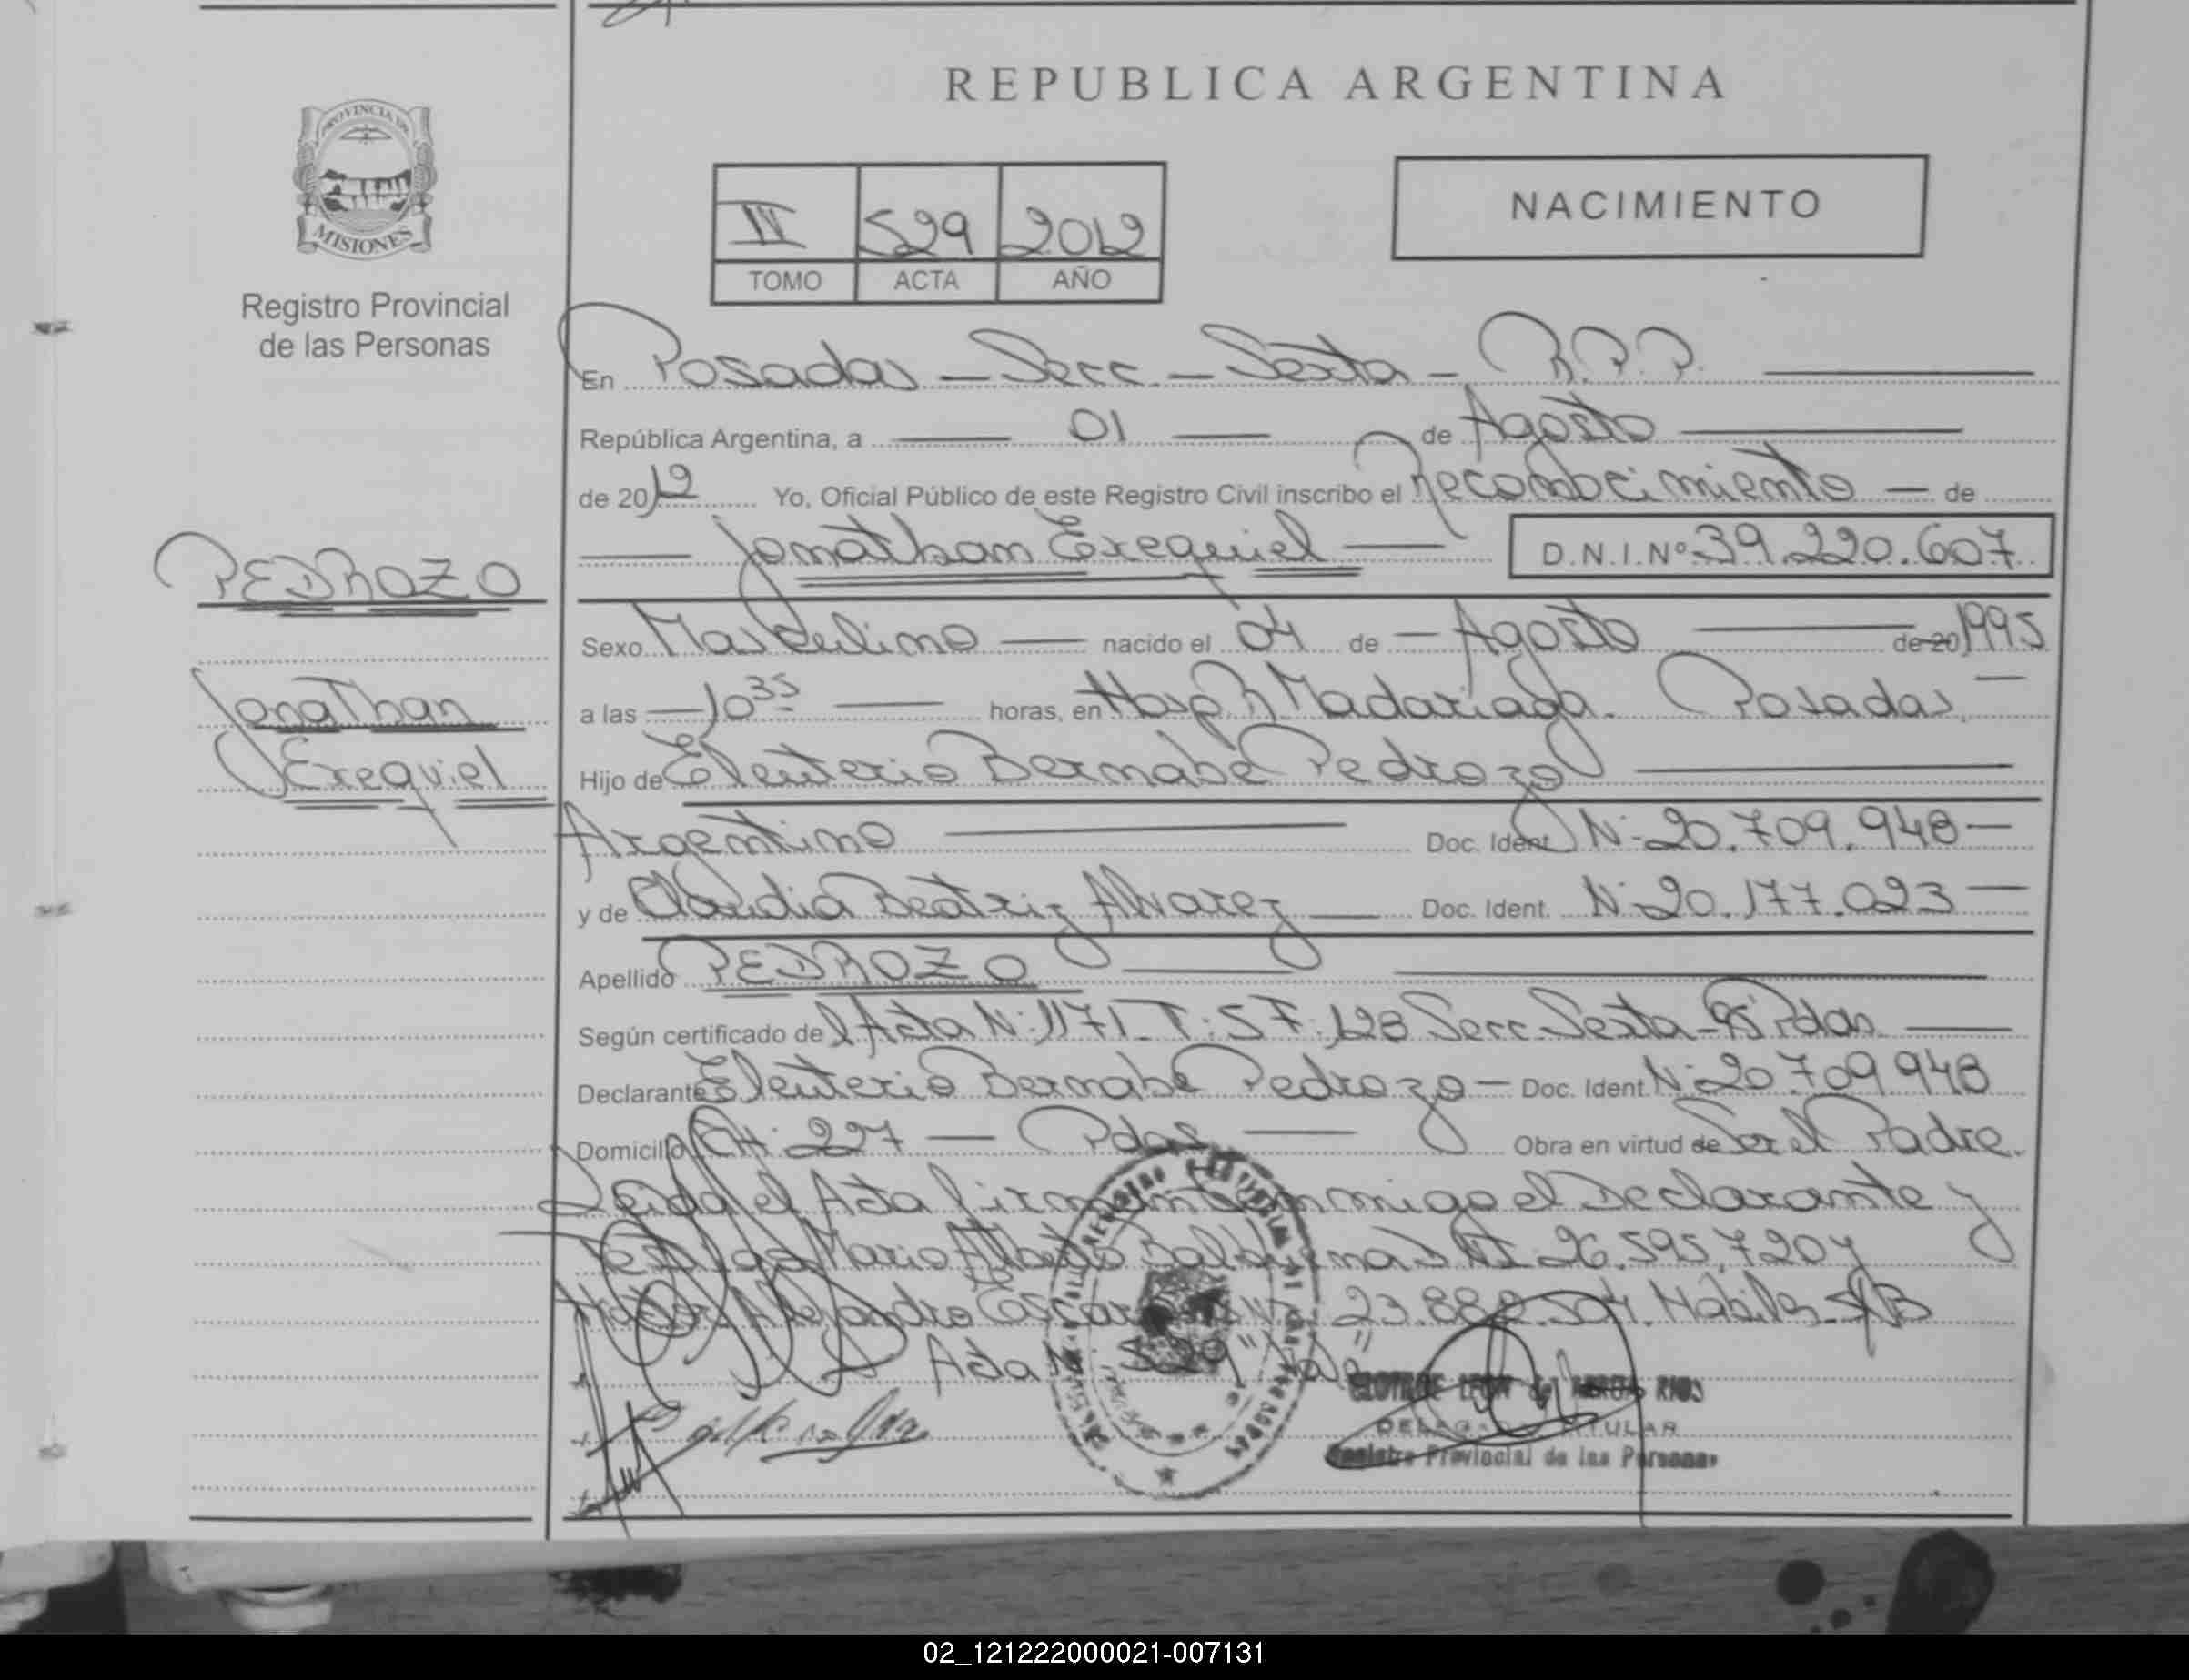 REPUBLICA ARGENTINA
PROVINCIA DE
MISIONES
Registro Provincial
de las Personas
IV 529 2012
TOMO ACTA AÑO
NACIMIENTO
En Posadas - Secc. - Sexta - R.P.P.
República Argentina, a 01 de Agosto
de 2012 Yo, Oficial Público de este Registro Civil inscribo el Reconocimiento - de
Jonathan Exequiel D.N.I.Nº 39.220.607
PEDROZO
Jonathan
Exequiel
Sexo Masculino nacido el 04 de - Agosto de 20 1995
a las - 10 35 horas, en Hosp R Madariaga. Posadas. -
Hijo de Eleuterio Bernabé Pedrozo
Argentino Doc. Ident. N: 20.709.948 -
y de Claudia Beatriz Alvarez - Doc. Ident. N: 20.177.023 -
Apellido PEDROZO
Según certificado de l Acta N: 1171 T: 5 F: 128 Secc. Sexta - 95 Pdas
Declarante Eleuterio Bernabé Pedrozo - Doc. Ident. N: 20709948
Domicilio Ch: 227 - Pdas - Obra en virtud de Ser el Padre.
Leida el Acta firman conmigo el Declarante y
Testigos Mario Alberto DNI 26.595.720 y
Alejandro 23.882.504. Habiles S/B
Acta N 529 "Vale"
DELEGADA TITULAR
Registro Provincial de las Personas
02_121222000021-007131